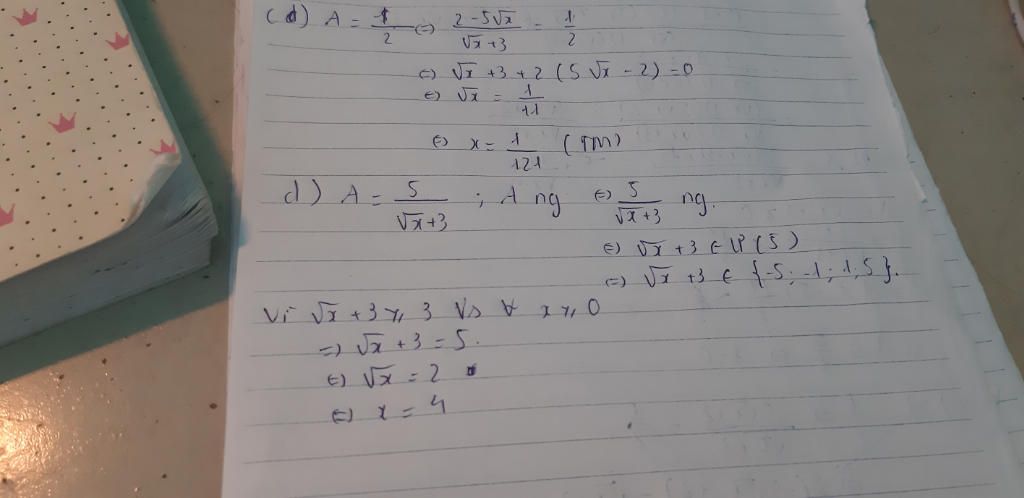 (d) A = 1/2 (=) (2 - 5√x)/(√x + 3) = 1/2
(=) √x + 3 + 2 (5√x - 2) = 0
(=) √x = 1/11
(=) x = 1/121 (TM)
d) A = 5/(√x + 3) ; A ng (=) 5/(√x + 3) ng.
(=) √x + 3 ∈ Ư(5)
(=) √x + 3 ∈ {-5; -1; 1; 5}.
Vì √x + 3 ⩾ 3 Vs ∀ x ⩾ 0
=) √x + 3 = 5.
(=) √x = 2
(=) x = 4